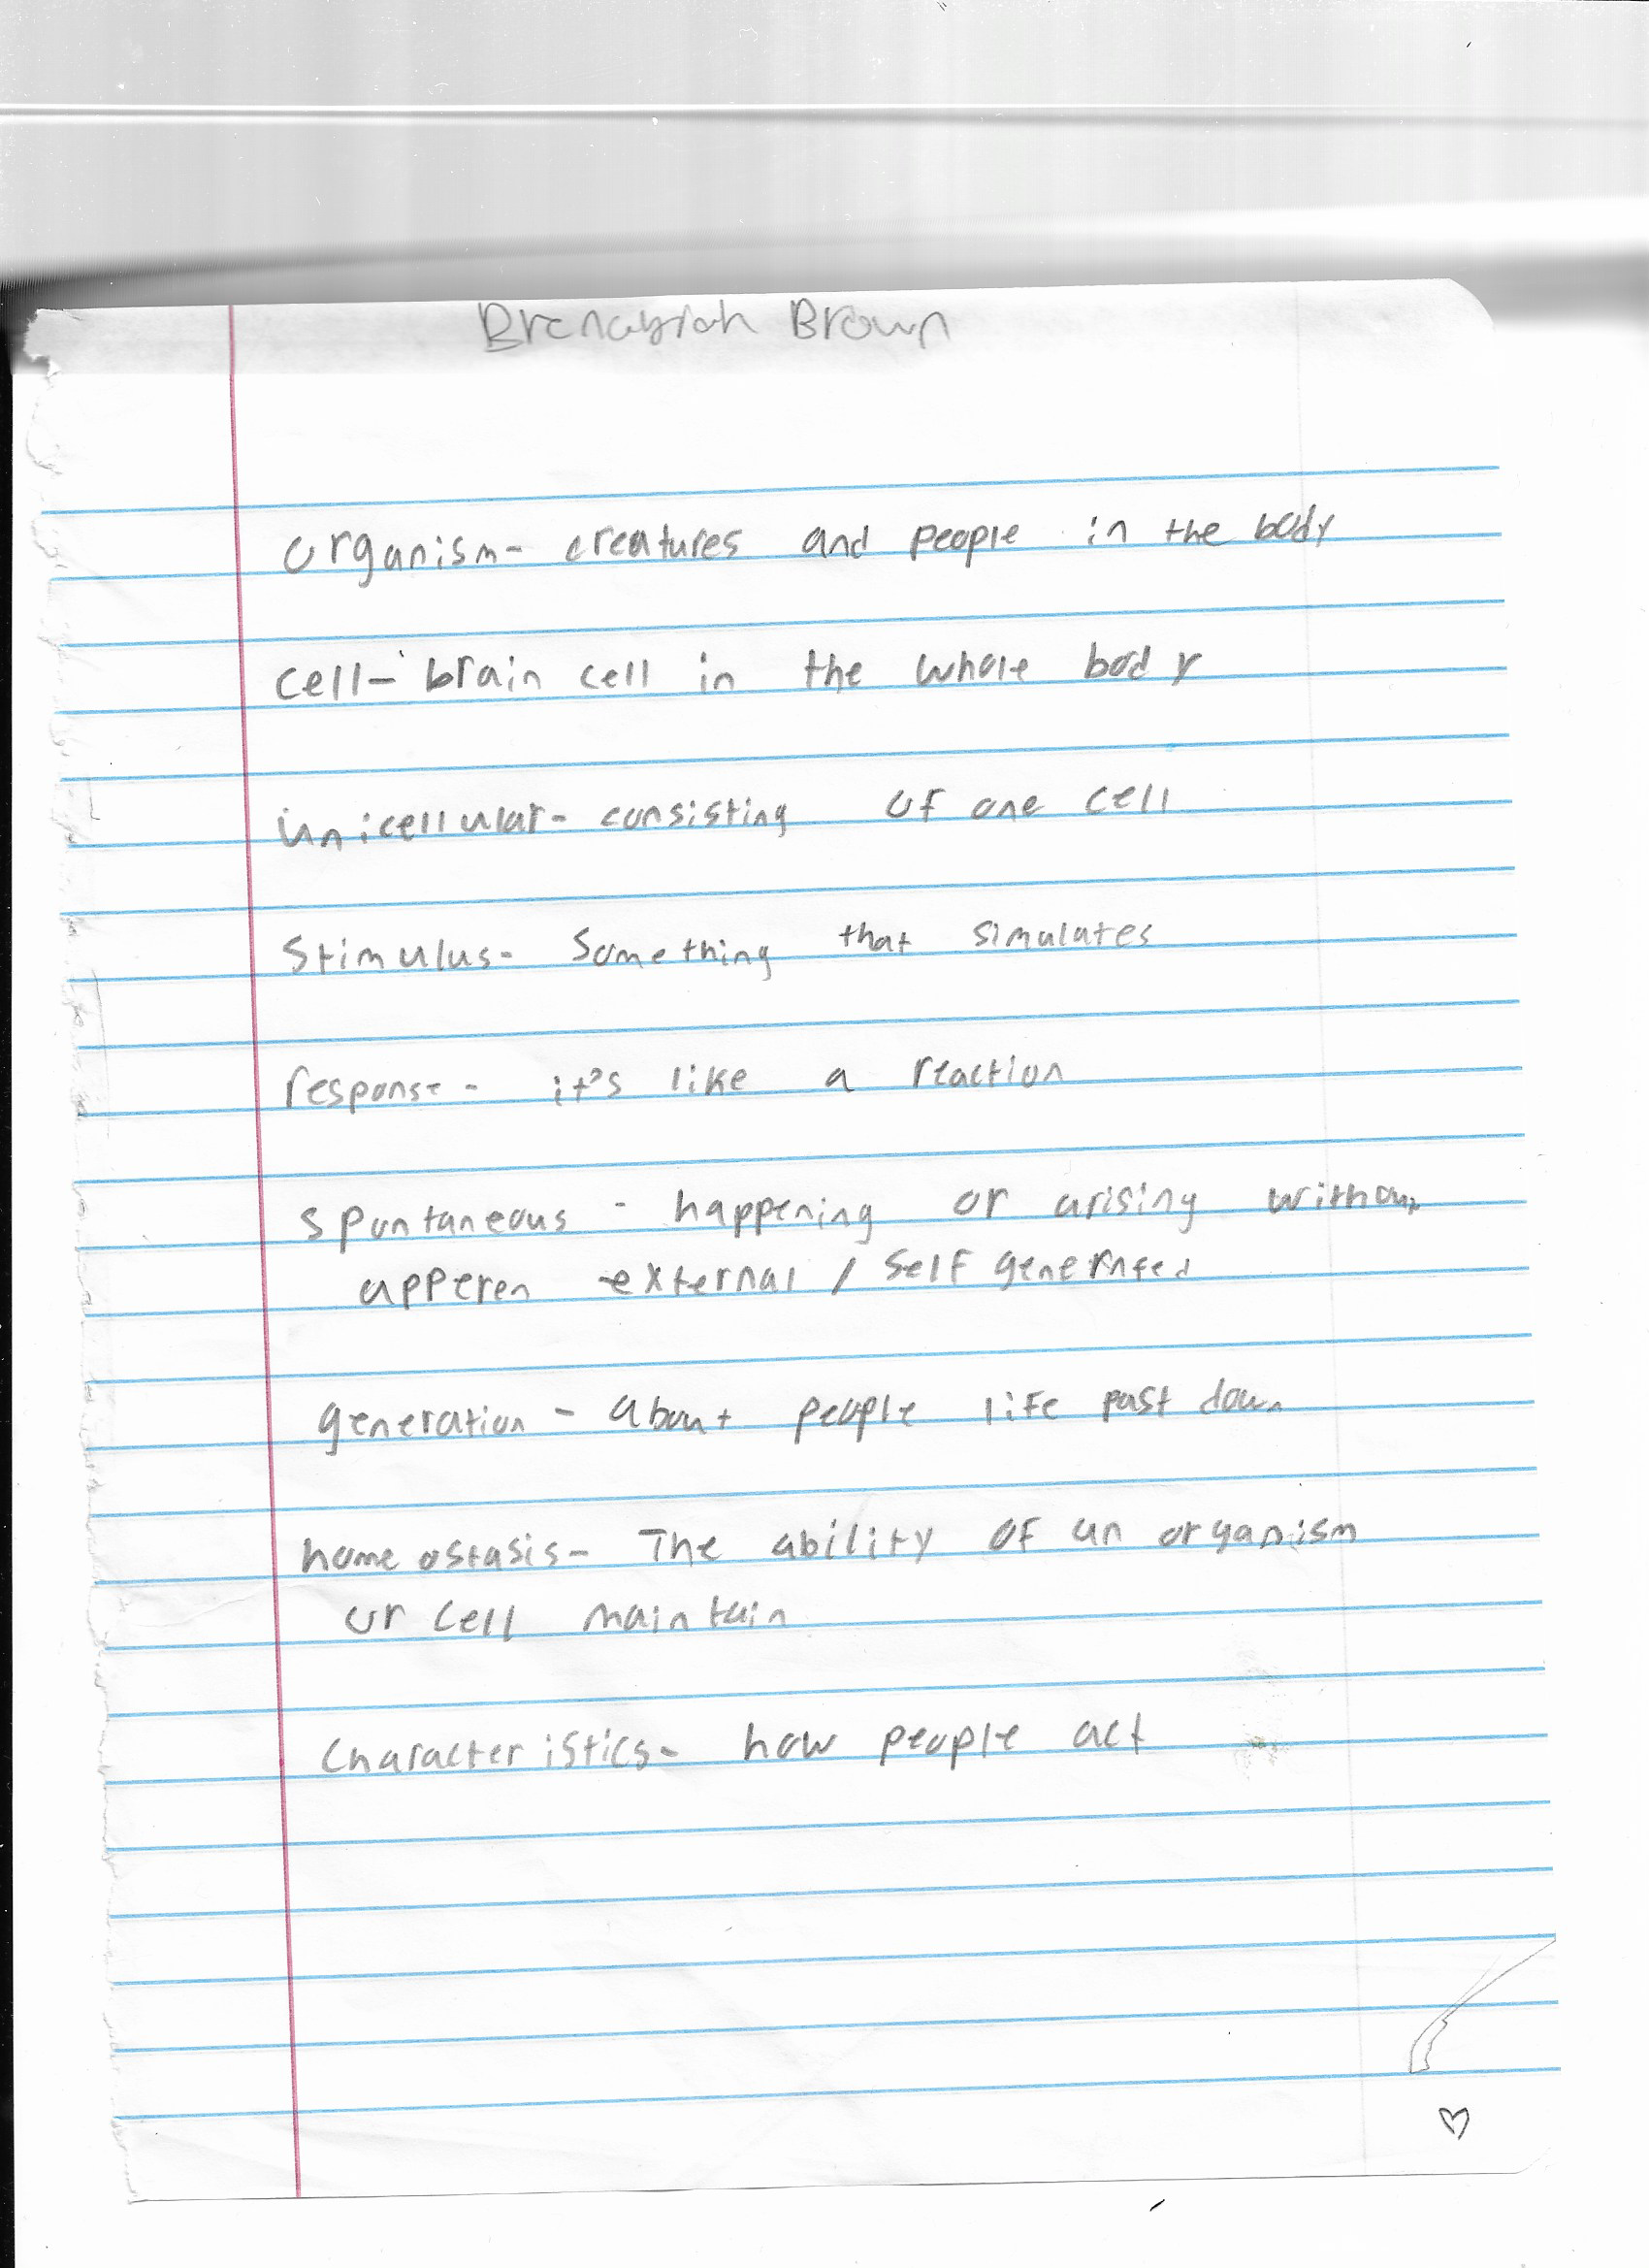 Brown
organism- creatures and people in the body
cell- brain cell in the whole body
unicellular- consisting of one cell
Stimulus- Something that simulates
response- it's like a reaction
spontaneous - happening or arising without
apperen external / self generated
generation - about people life past down
homeostasis- The ability of an organism
or cell maintain
Characteristics- how people act